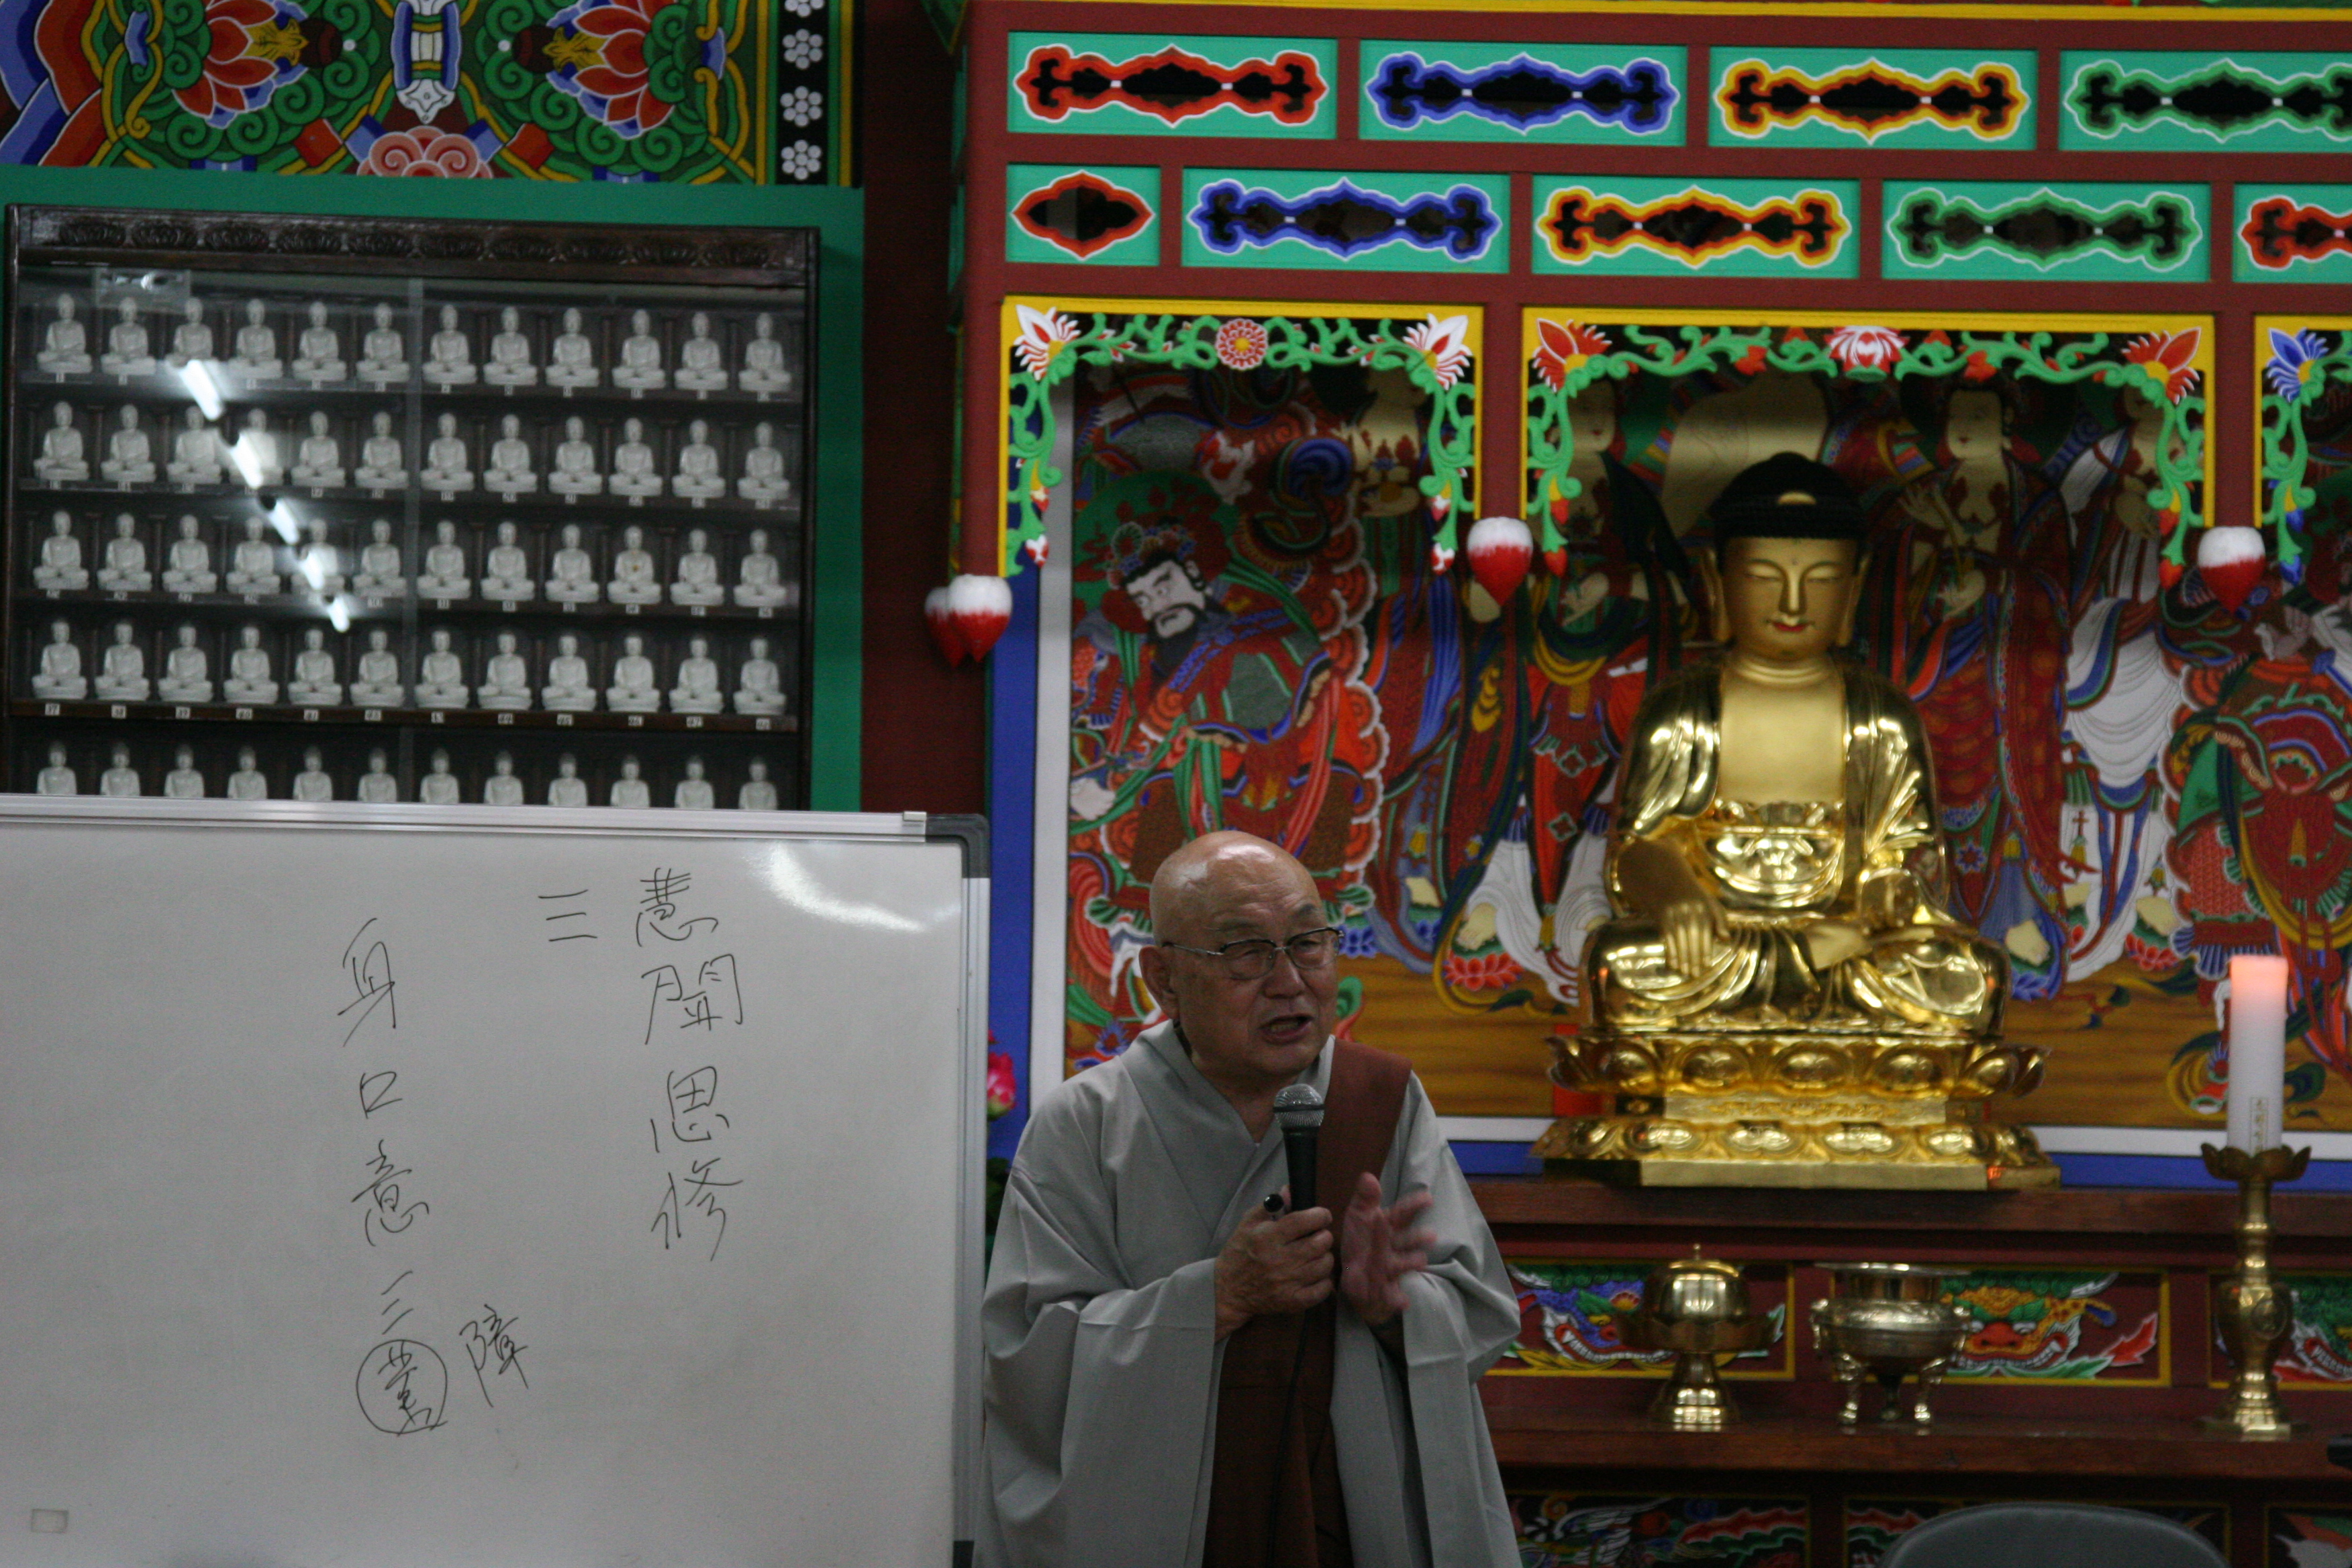 慧聞思修
三
身口意三業
障